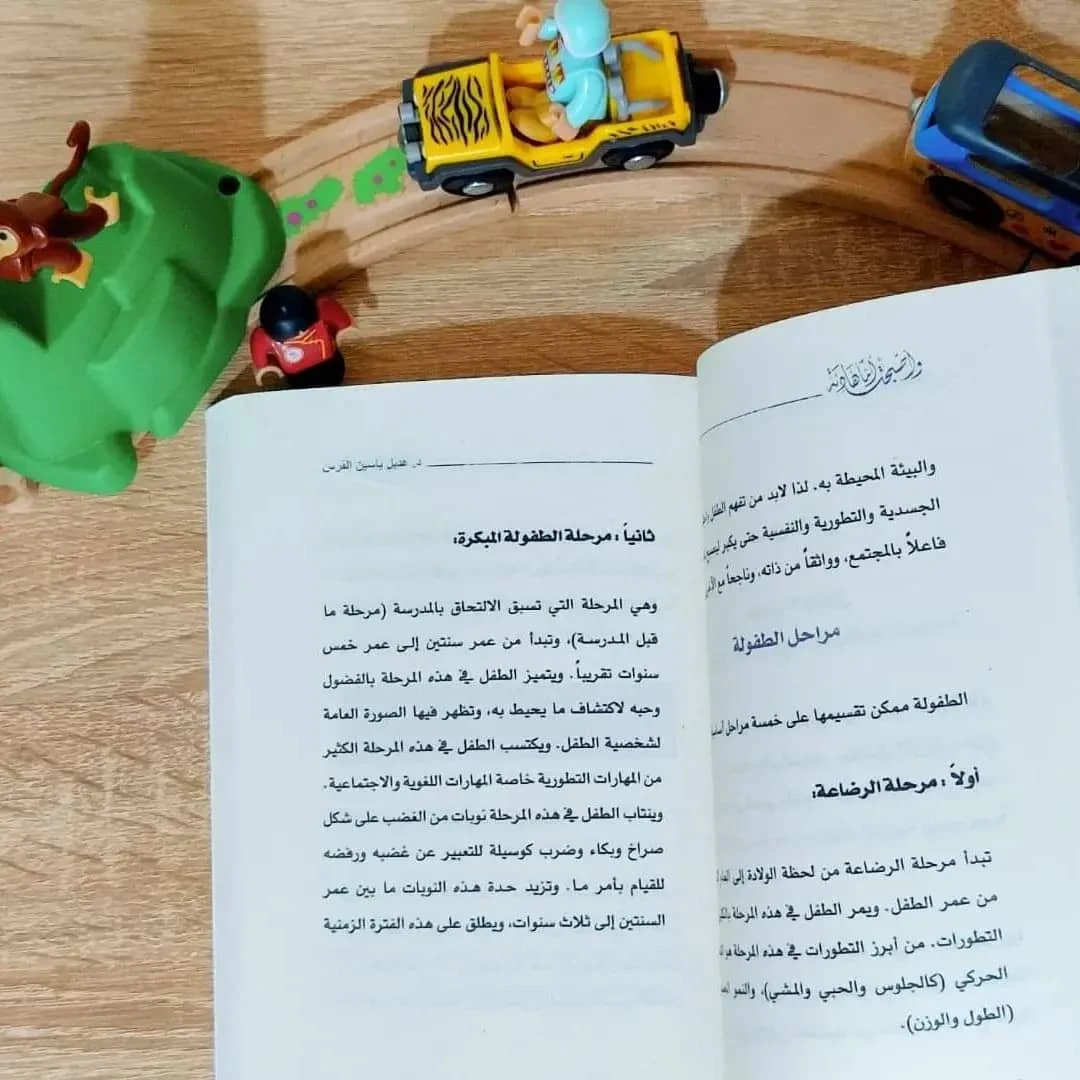 وأصبحت أما هادئة
والبيئة المحيطة به. لذا لابد من تفهم الطفل
الجسدية والتطورية والنفسية حتى يكبر ليصبح
فاعلاً بالمجتمع، وواثقاً من ذاته، وناجحاً مع
مراحل الطفولة
الطفولة ممكن تقسيمها على خمسة مراحل
أولاً : مرحلة الرضاعة:
تبدأ مرحلة الرضاعة من لحظة الولادة إلى
من عمر الطفل. ويمر الطفل في هذه المرحلة
التطورات. من أبرز التطورات في هذه المرحلة
الحركي (كالجلوس والحبي والمشي)، والنمو
(الطول والوزن).
د. هديل ياسين الفرس
ثانياً : مرحلة الطفولة المبكرة:
وهي المرحلة التي تسبق الالتحاق بالمدرسة (مرحلة ما
قبل المدرسة)، وتبدأ من عمر سنتين إلى عمر خمس
سنوات تقريباً. ويتميز الطفل في هذه المرحلة بالفضول
وحبه لاكتشاف ما يحيط به، وتظهر فيها الصورة العامة
لشخصية الطفل. ويكتسب الطفل في هذه المرحلة الكثير
من المهارات التطورية خاصة المهارات اللغوية والاجتماعية.
وينتاب الطفل في هذه المرحلة نوبات من الغضب على شكل
صراخ وبكاء وضرب كوسيلة للتعبير عن غضبه ورفضه
للقيام بأمر ما. وتزيد حدة هذه النوبات ما بين عمر
السنتين إلى ثلاث سنوات، ويطلق على هذه الفترة الزمنية